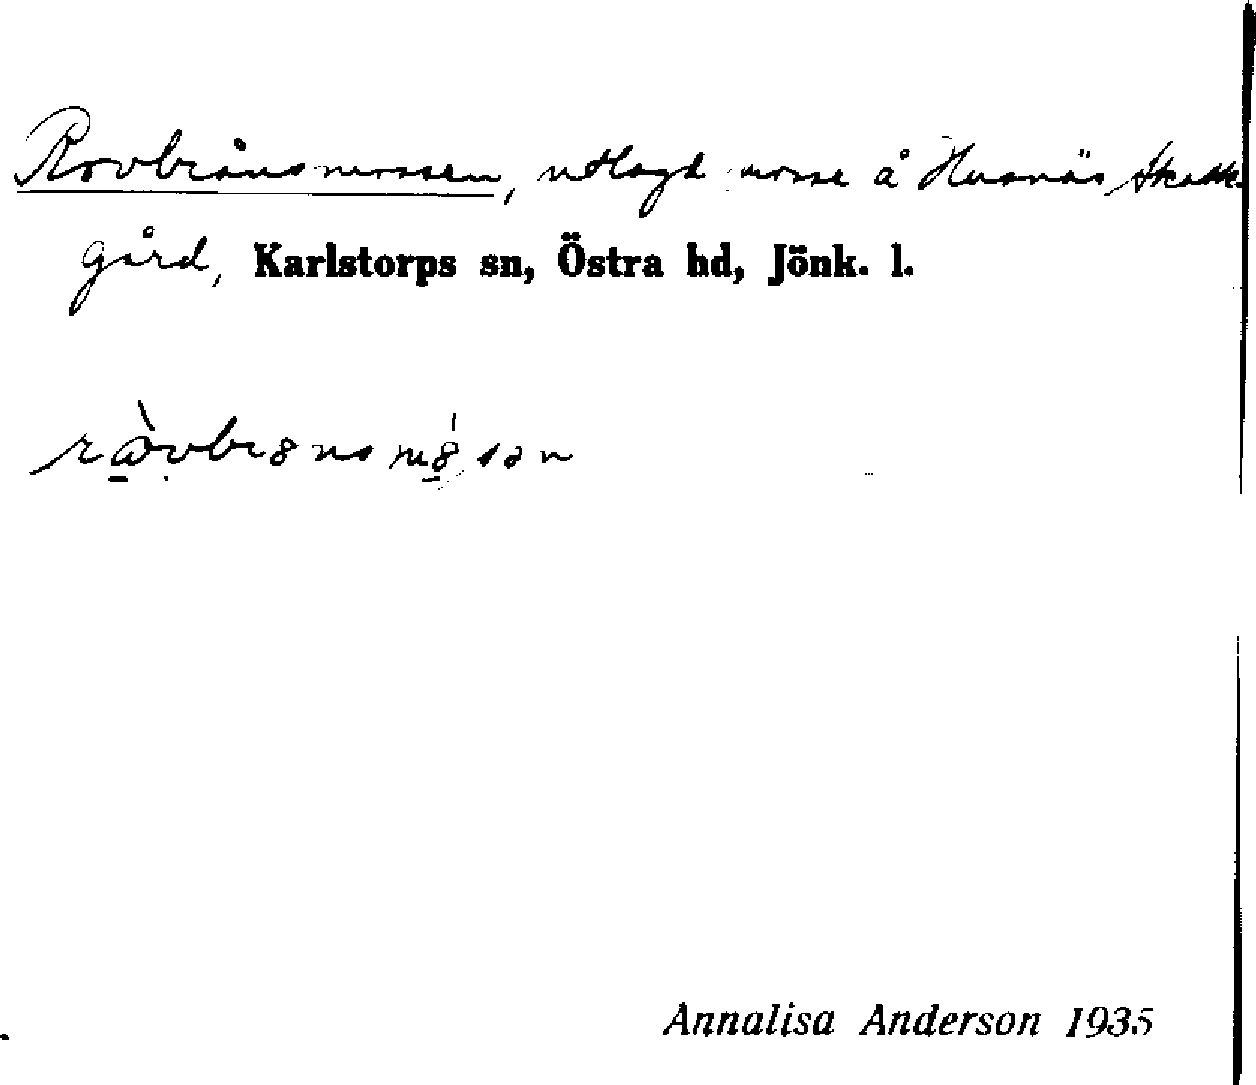 Rovbrånsmossen, utlagd mosse å Husnäs Skatte-
gård, Karlstorps sn, Östra hd, Jönk. l.
Annalisa Anderson 1935